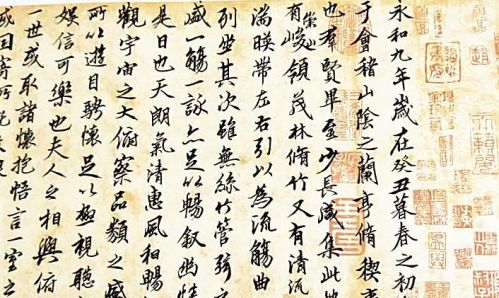 永和九年歲在癸丑暮春之初
于會稽山陰之蘭亭脩稧
也羣賢畢至少長咸集此地
有崇山峻領茂林脩竹又有清流
湍暎帶左右引以為流觴曲
列坐其次雖無絲竹管弦
盛一觴一詠亦足以暢叙幽情
是日也天朗氣清惠風和暢
觀宇宙之大俯察品類之盛
所以遊目騁懷足以極視聽
娛信可樂也夫人之相與俯
一世或取諸懷抱悟言一室之
或因寄所託